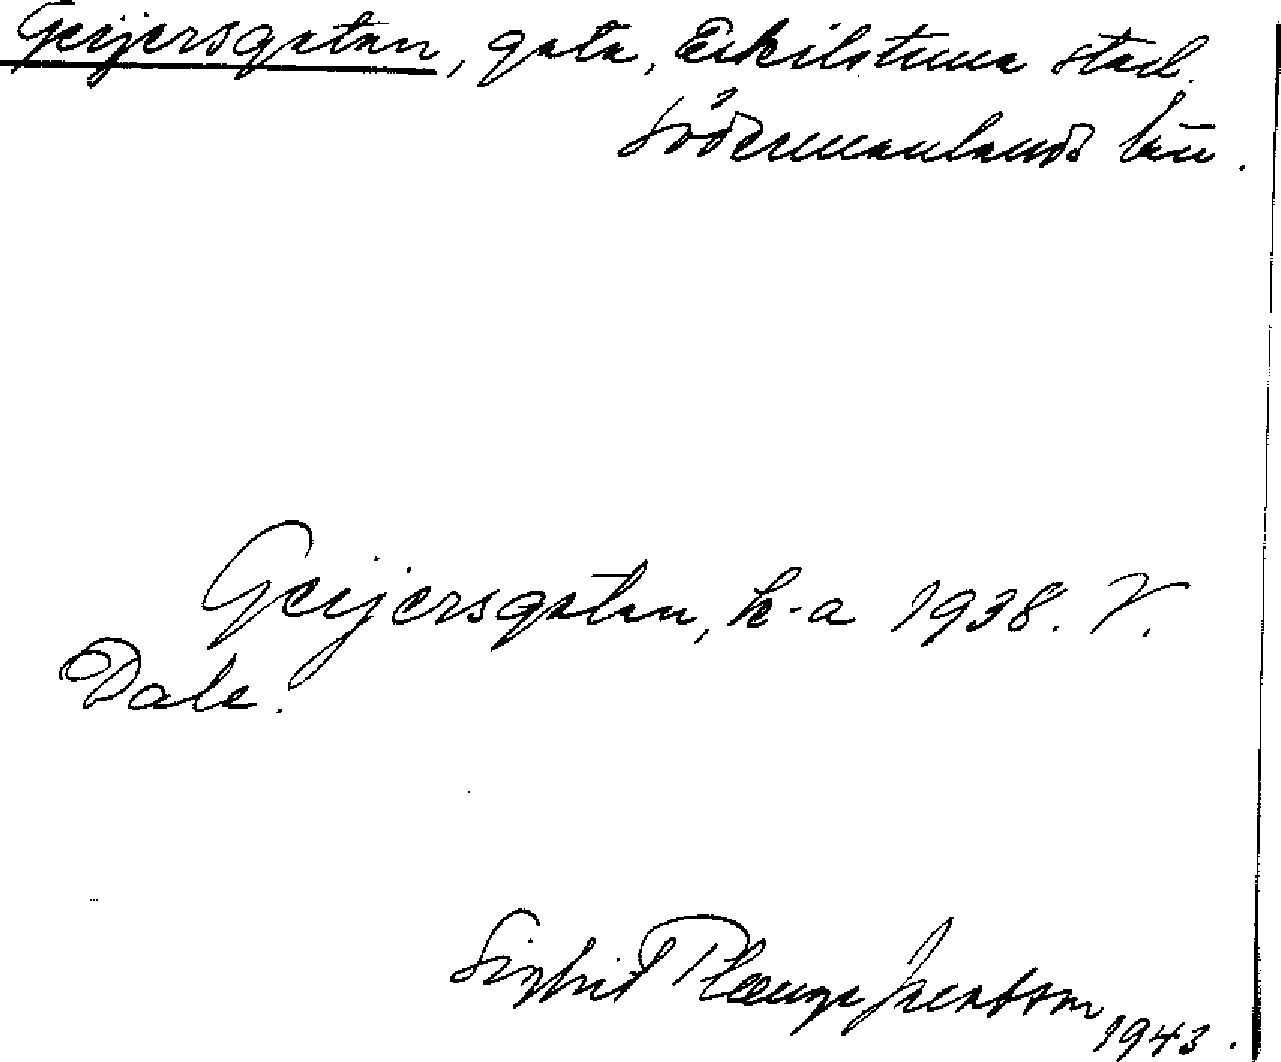 Geijersgatan, gata, Eskilstuna stad.
Södermanlands län.
Geijersgatan, k-a 1938. V.
Dale.
Sigfrid Plænge Jacobson
1943.